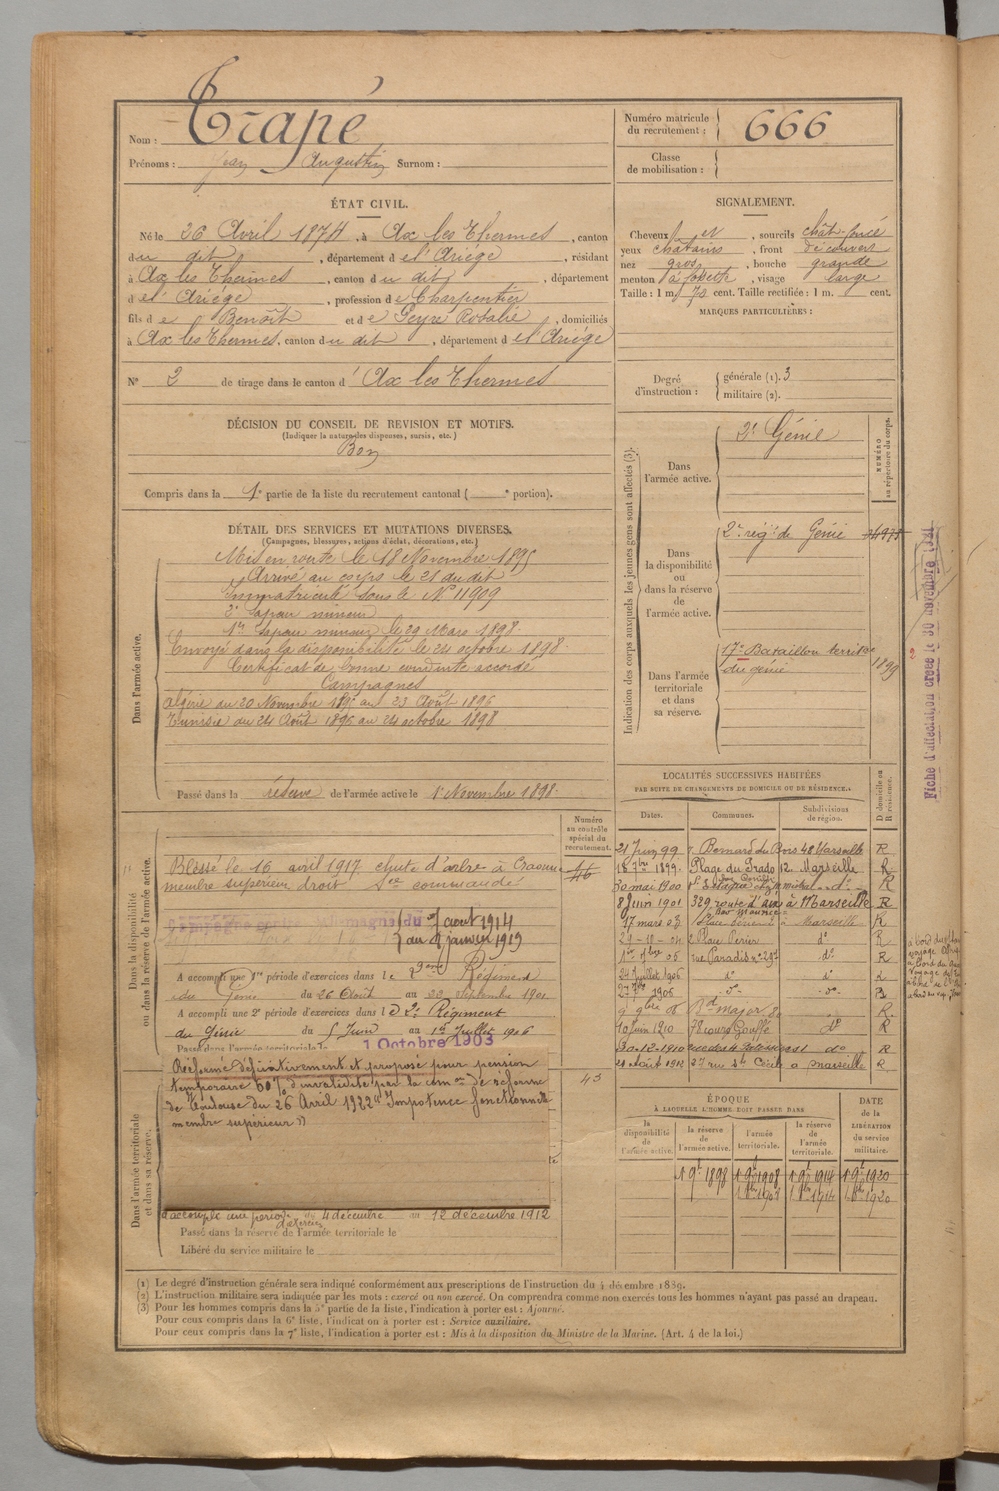 Trapé
Nom :
Prénoms : Jean Augustin Surnom :
Numéro matricule
du recrutement : 666
Classe
de mobilisation :
ÉTAT CIVIL.
Né le 26 Avril 1874, à Ax les Thermes, canton
du dit, département de l'Ariége, résidant
à Ax les Thermes, canton du dit, département
de l'Ariége, profession de Charpentier
fils de Benoît et de Peyre Rosalie, domiciliés
à Ax les Thermes, canton du dit, département de l'Ariége
N° 2 de tirage dans le canton d'Ax les Thermes
SIGNALEMENT.
Cheveux et, sourcils chât. foncé
yeux châtains, front découvert
nez gros, bouche grande
menton à fossette, visage large
Taille : 1 m. 73 cent. Taille rectifiée : 1 m. cent.
MARQUES PARTICULIÈRES :
Degré
d'instruction :
générale (1). 3
militaire (2).
DÉCISION DU CONSEIL DE REVISION ET MOTIFS.
(Indiquer la nature des dispenses, sursis, etc.)
Bon
Compris dans la 1e partie de la liste du recrutement cantonal ( e portion).
DÉTAIL DES SERVICES ET MUTATIONS DIVERSES.
(Campagnes, blessures, actions d'éclat, décorations, etc.)
Dans l'armée active.
Mis en route le 18 Novembre 1895
Arrivé au corps le 21 du dit
Immatriculé sous le N° 11909
2e Sapeur mineur
1er Sapeur mineur le 29 Mars 1898.
Envoyé dans la disponibilité le 24 octobre 1898.
Certificat de bonne conduite accordé
Campagnes
Algérie du 20 Novembre 1895 au 23 Août 1896
Tunisie du 24 Août 1896 au 24 octobre 1898
Passé dans la réserve de l'armée active le 1er Novembre 1898.
Indication des corps auxquels les jeunes gens sont affectés (3).
NUMÉRO
au répertoire du corps.
Dans
l'armée active.
2e Génie
Dans
la disponibilité
ou
dans la réserve
de
l'armée active.
2e régt de Génie
Dans l'armée
territoriale
et dans
sa réserve.
17e Bataillon territ
du génie
1899
Fiche d'affectation créée le 30 novembre
Dans la disponibilité
ou dans la réserve de l'armée active.
Numéro
au contrôle
spécial du
recrutement.
46
Blessé le 16 avril 1917 chute d'arbre à Craonne
membre supérieur droit Sce commandé
Campagne contre l'Allemagne du août 1914
au janvier 1919
A accompli une 1re période d'exercices dans le 2eme Régiment
du Génie du 26 Août au 22 Septembre 1901
A accompli une 2e période d'exercices dans le 2e Régiment
du Génie du 5 Juin au 1er Juillet 1906
Passé dans l'armée territoriale le 1 Octobre 1903
Dans l'armée territoriale
et dans sa réserve.
Réformé définitivement et proposé pour pension
temporaire 60% d'invalidité par la con de réforme
de Toulouse du 26 Avril 1922 "Impotence fonctionnelle
membre supérieur"
a accompli une période d'exercices du 4 décembre au 12 décembre 1912
Passé dans la réserve de l'armée territoriale le
Libéré du service militaire le
LOCALITÉS SUCCESSIVES HABITÉES
PAR SUITE DE CHANGEMENTS DE DOMICILE OU DE RÉSIDENCE.
D domicile ou
R résidence.
Dates. Communes. Subdivisions
de région.
21 Juin 99 r. Bernard du Bois 48 Marseille R
18 7bre 1899. Plage du Prado 12. Marseille R
30 mai 1900 R
8 Juin 1901 329 route d'aix à Marseille R
17 mars 03 à Marseille R
29-10-04 2 Place Perier do R
05 rue Paradis do R
24 Juillet 1906 do do R
1906 do do R
9 9bre 08 Bd major R
10 juin 1910 78 cours Gouffé do R
30-12-1910 do R
21 août 1912 27 rue Ste Cécile à Marseille R
ÉPOQUE
À LAQUELLE L'HOMME DOIT PASSER DANS
DATE
de la
LIBÉRATION
du service
militaire.
la
disponibilité
de
l'armée active.
la réserve
de
l'armée active.
l'armée
territoriale.
la réserve
de
l'armée
territoriale.
1 9bre 1898 1 9bre 1908 1 9bre 1914 1 9bre 1920
(1) Le degré d'instruction générale sera indiqué conformément aux prescriptions de l'instruction du 4 décembre 1889.
(2) L'instruction militaire sera indiquée par les mots : exercé ou non exercé. On comprendra comme non exercés tous les hommes n'ayant pas passé au drapeau.
(3) Pour les hommes compris dans la 5e partie de la liste, l'indication à porter est : Ajourné.
Pour ceux compris dans la 6e liste, l'indication à porter est : Service auxiliaire.
Pour ceux compris dans la 7e liste, l'indication à porter est : Mis à la disposition du Ministre de la Marine. (Art. 4 de la loi.)